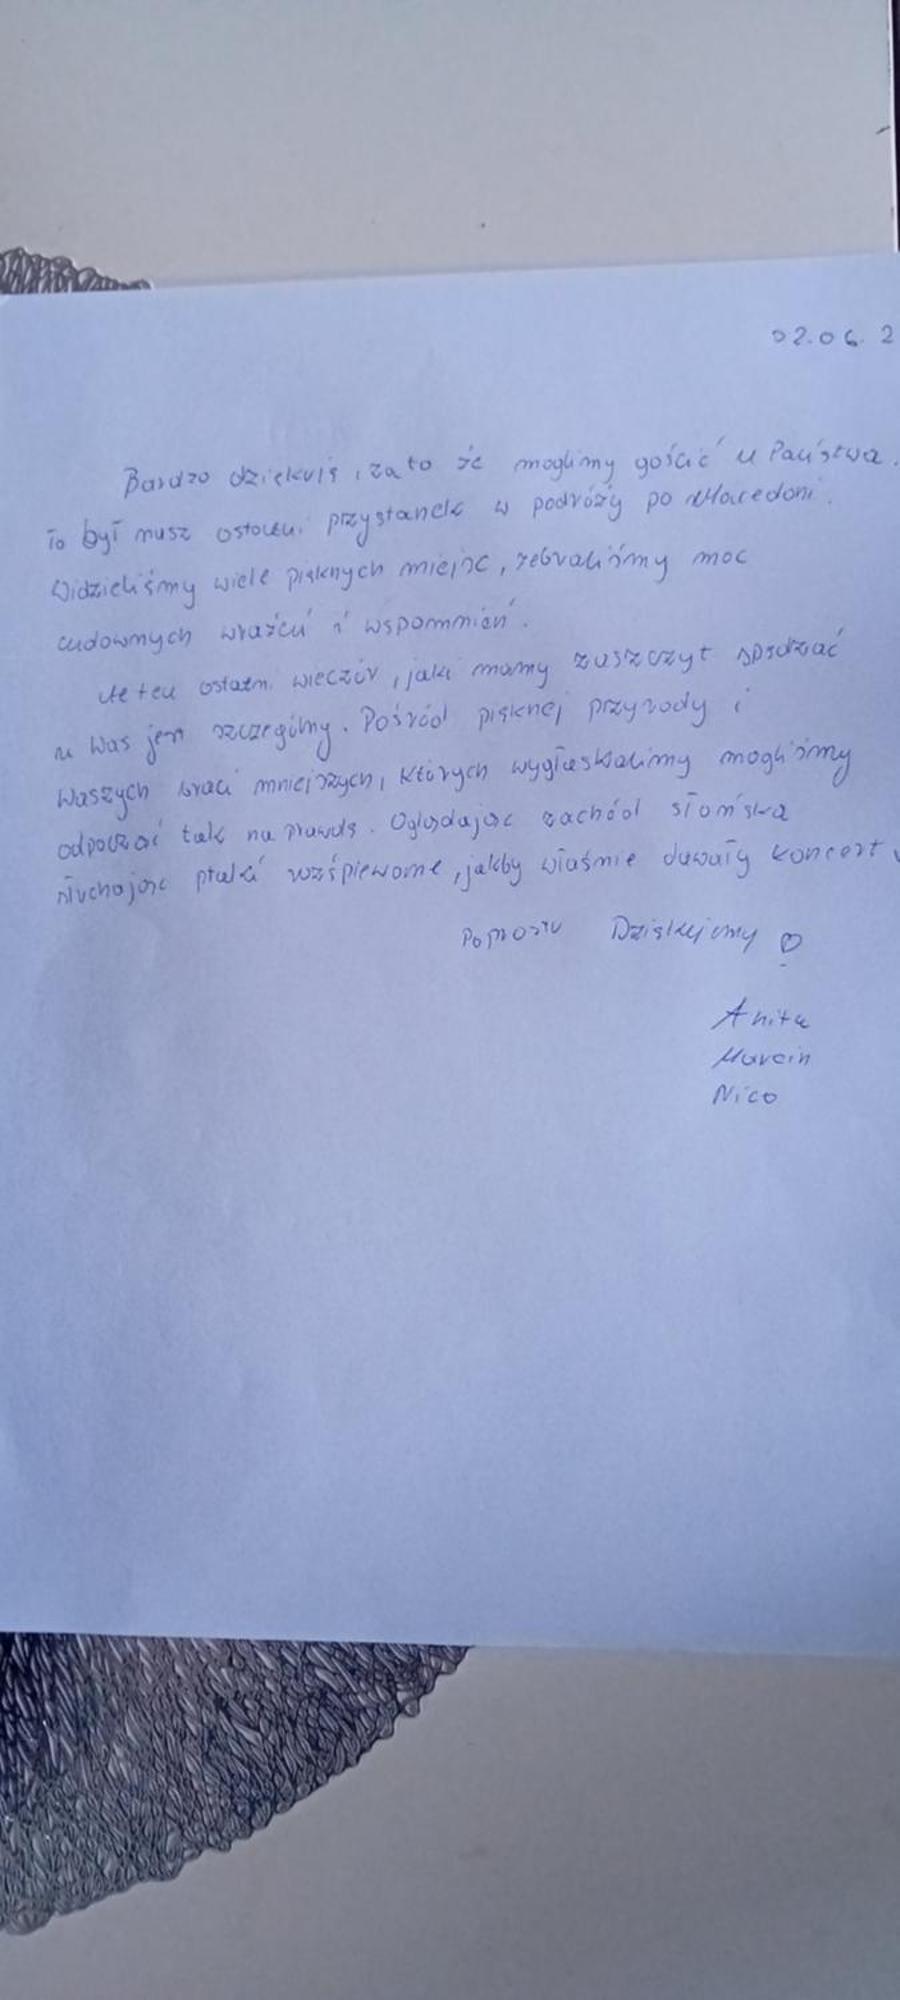 02.06.2
Bardzo dziękuję, za to że moglimy gościć u Państwa.
To był nasz ostatni przystanek w podróży po Macedoni.
Widzieliśmy wiele pięknych miejsc, zebraliśmy moc
cudownych wrażeń i wspomnień.
Ale ten ostatni wieczór, jaki mamy zaszczyt spędzać
u Was jest szczególny. Pośród pięknej przyrody i
Waszych braci mniejszych, których wygłaskalimy mogliśmy
odpocząć tak na prawdę. Oglądając zachód słońska
słuchając ptaki rozśpiewane, jakby właśnie dawały koncert
Poprostu Dziękujemy
Anita
Marcin
Nico